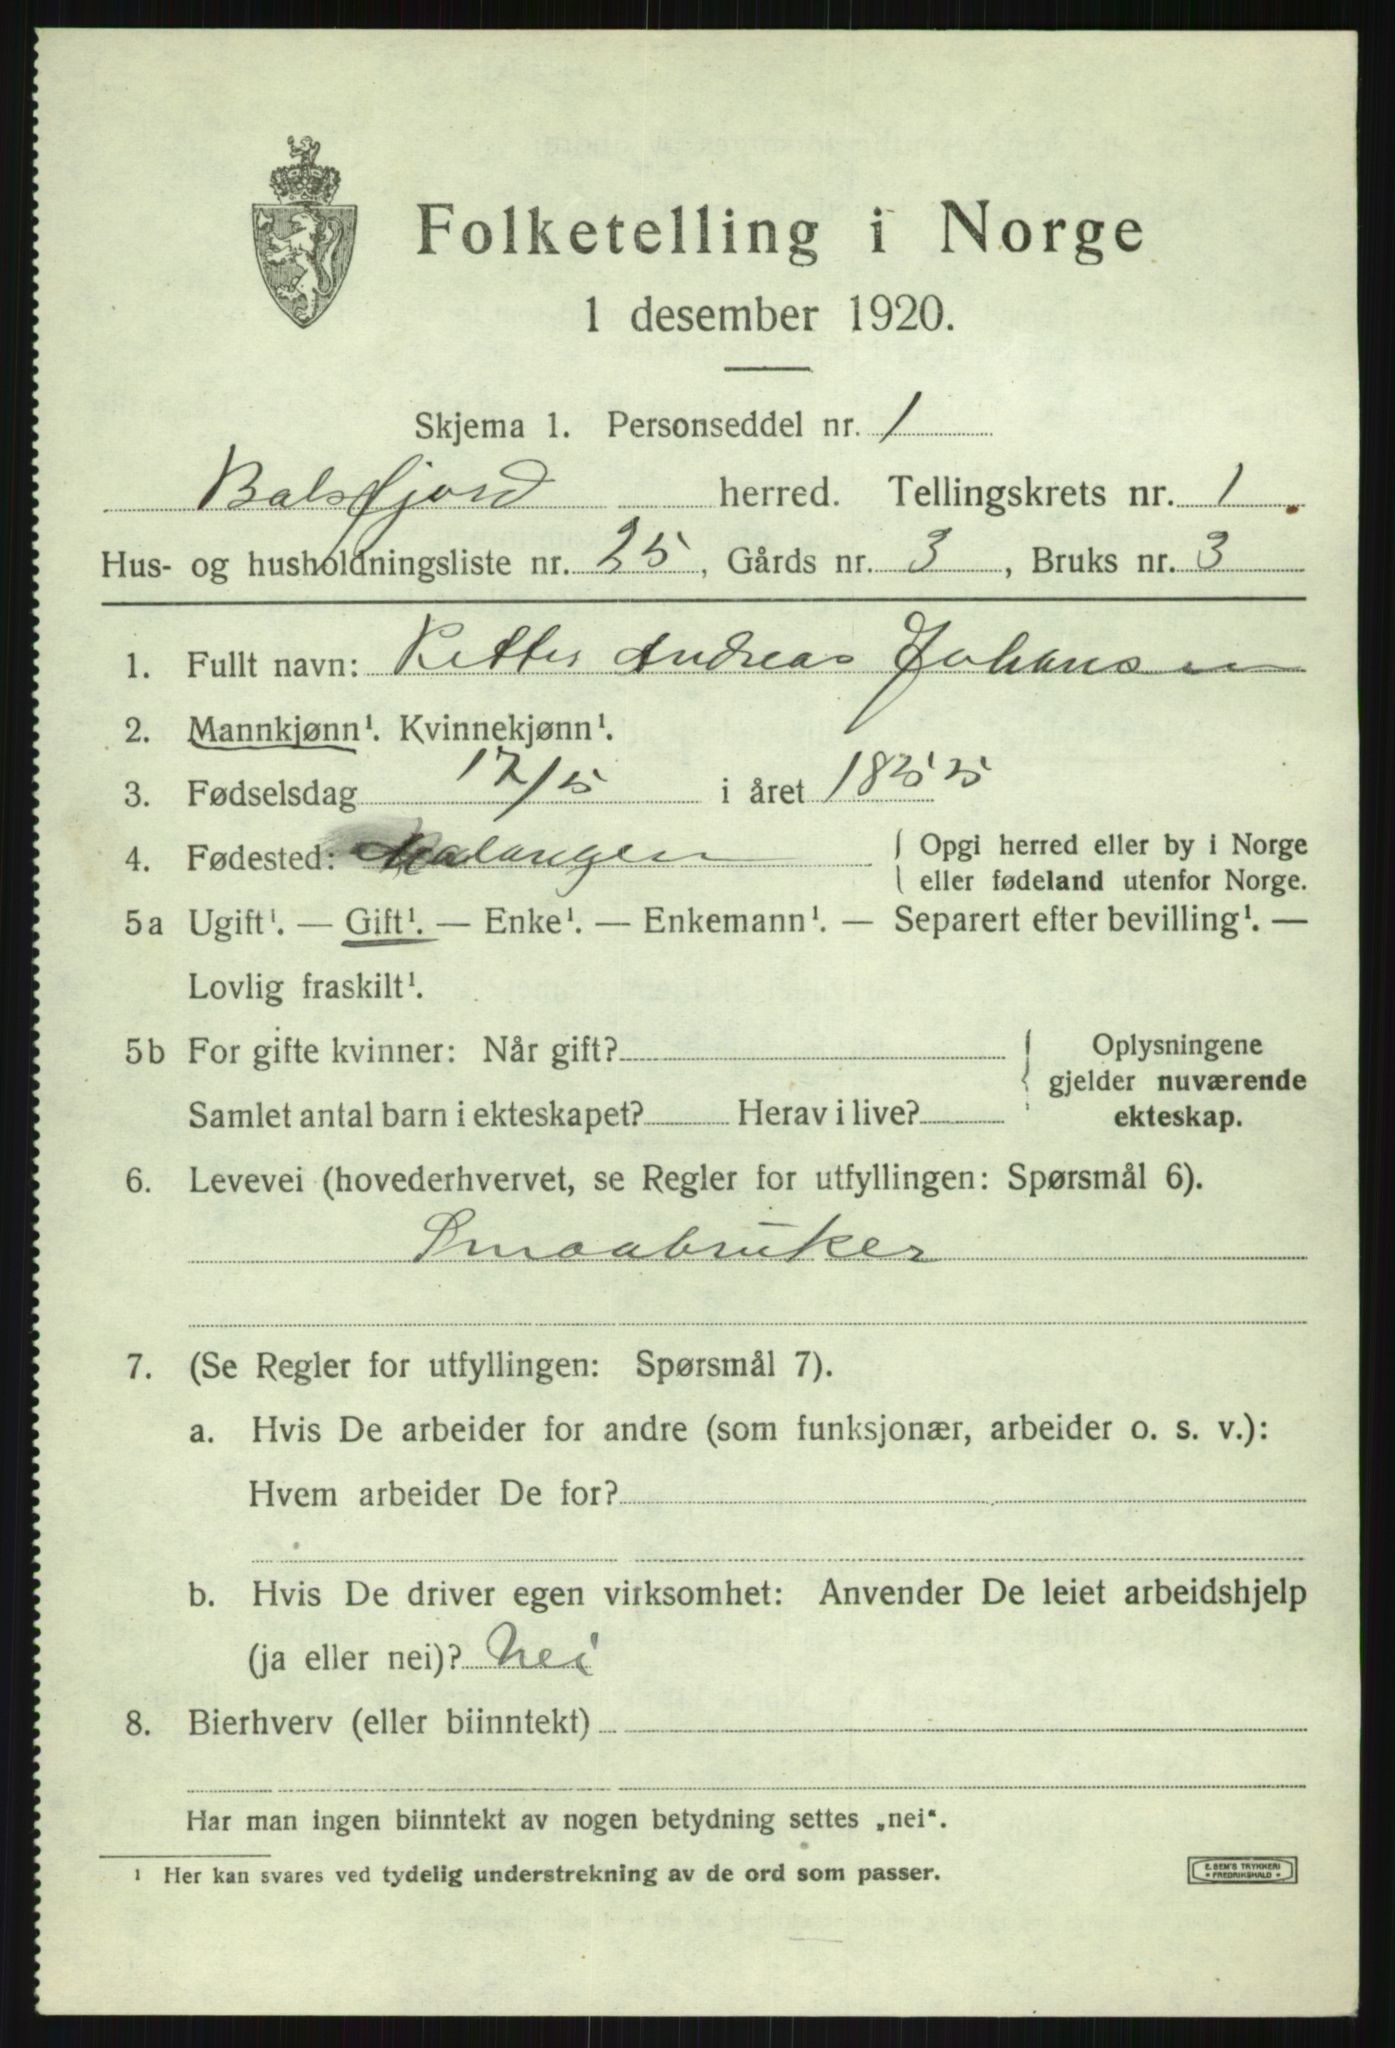 Folketelling i Norge
1 desember 1920.
Skjema 1. Personseddel nr. 1
Balsfjord herred. Tellingskrets nr. 1.
Hus- og husholdningsliste nr. 25, Gårds nr. 3, Bruks nr. 3
1. Fullt navn: Petter Andreas Johansen
2. Mannkjønn¹. Kvinnekjønn¹.
3. Fødselsdag 17/5 i året 1855
4. Fødested: Malangen { Opgi herred eller by i Norge
eller fødeland utenfor Norge.
5a Ugift¹. — Gift¹. — Enke¹. — Enkemann¹. — Separert efter bevilling¹. —
Lovlig fraskilt¹.
5b For gifte kvinner: Når gift? { Oplysningene
gjelder nuværende
Samlet antal barn i ekteskapet? Herav i live? ekteskap.
6. Levevei (hovederhvervet, se Regler for utfyllingen: Spørsmål 6).
Smaabruker
7. (Se Regler for utfyllingen: Spørsmål 7).
a. Hvis De arbeider for andre (som funksjonær, arbeider o. s. v.):
Hvem arbeider De for?
b. Hvis De driver egen virksomhet: Anvender De leiet arbeidshjelp
(ja eller nei)? Nei
8. Bierhverv (eller biinntekt)
Har man ingen biinntekt av nogen betydning settes „nei“.
¹ Her kan svares ved tydelig understrekning av de ord som passer.
E. SEM'S TRYKKERI
• FREDRIKSHALD •